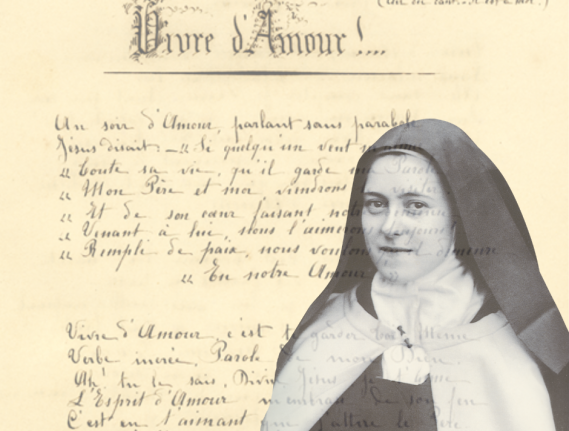 Vivre d'Amour !...
Au soir d'Amour, parlant sans parabole
Jésus disait _ « Si quelqu'un veut
« Toute sa vie, qu'il garde ma Parole
« Mon Père et moi viendrons
« Et de son cœur faisant notre
« Venant à lui, nous l'aimerons toujours
« Rempli de paix, nous voulons
« En notre Amour
Vivre d'Amour, c'est te garder Toi Même
Verbe incréé, Parole de mon Dieu
Ah ! tu le sais, Divin Jésus je t'aime
L'Esprit d'Amour m'embrase de son feu
C'est en t'aimant que j'attire le Père